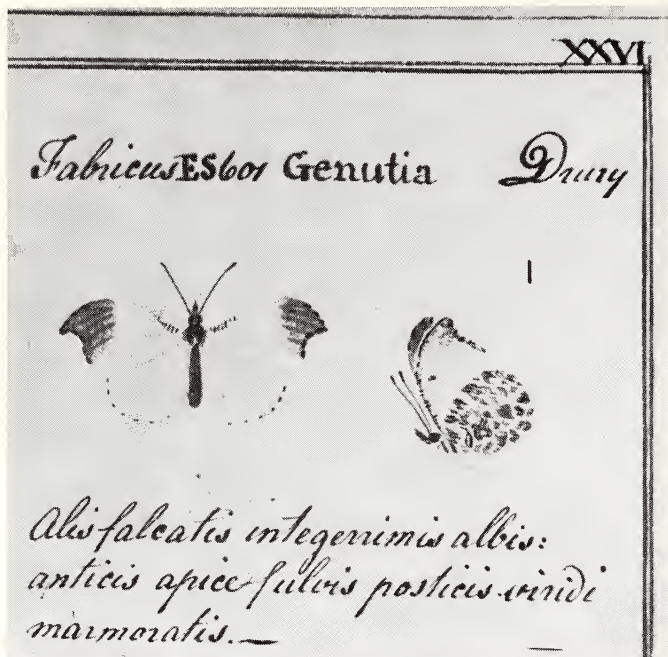 XXVI
Fabricus ESbor Genutia Drury
1
Alis falcatis integerrimis albis:
anticis apice fulvis posticis viridi
marmoratis.—